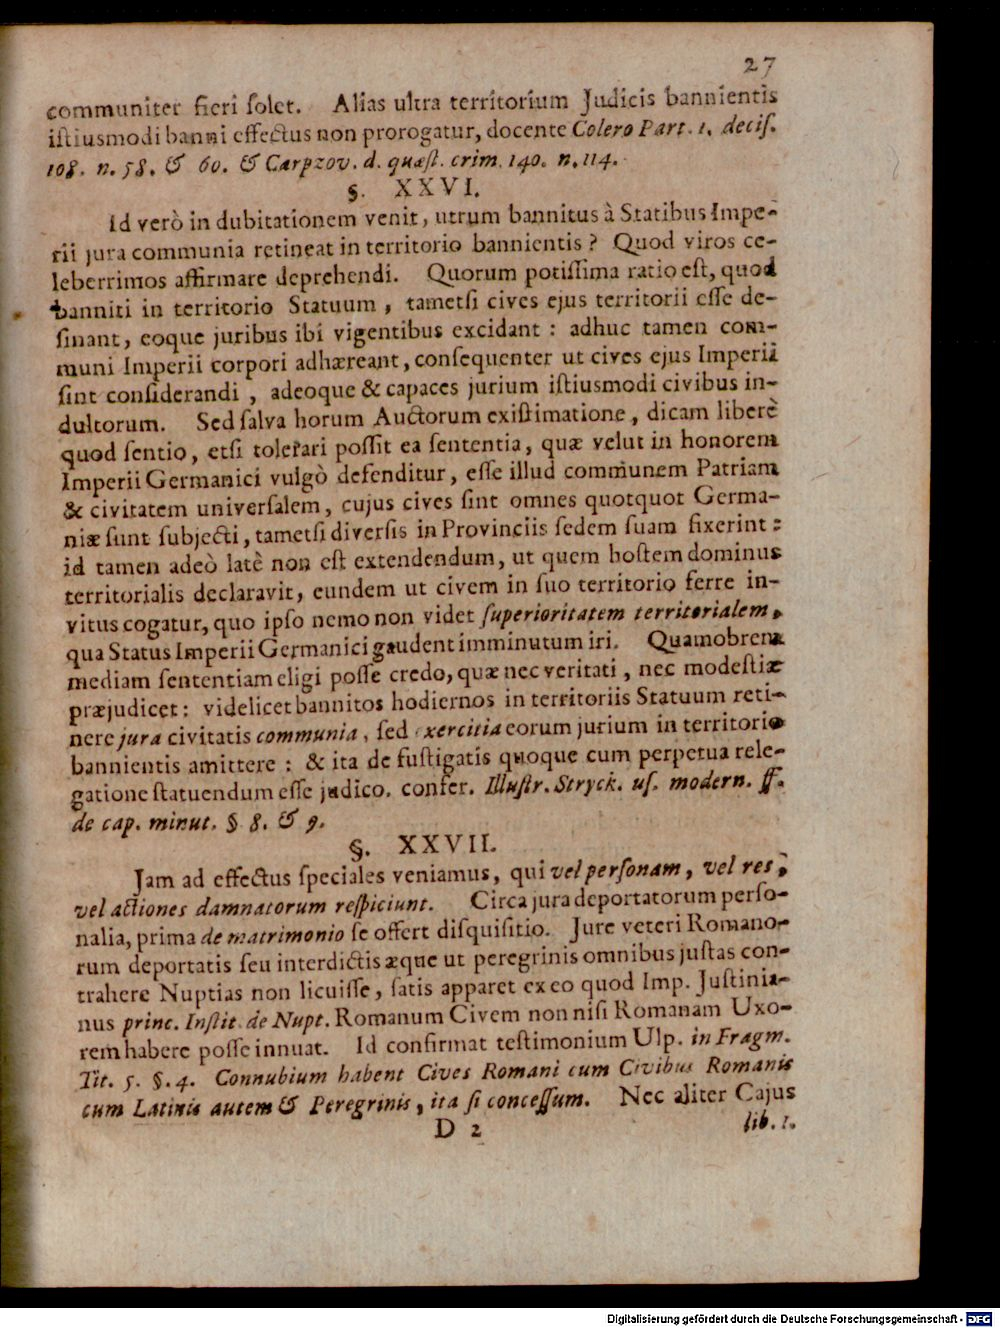 27
communiter fieri ſolet. Alias ultra territorium Judicis bannientis
iſtiusmodi banni effectus non prorogatur, docente Colero Part. 1. deciſ.
108. n. 58. & 60. & Carpzov. d. quæſt. crim. 140. n. 114.
§. XXVI.
Id verò in dubitationem venit, utrum bannitus à Statibus Impe-
rii jura communia retineat in territorio bannientis? Quod viros ce-
leberrimos affirmare deprehendi. Quorum potiſſima ratio eſt, quod
banniti in territorio Statuum, tametſi cives ejus territorii eſſe de-
ſinant, eoque juribus ibi vigentibus excidant: adhuc tamen com-
muni Imperii corpori adhæreant, conſequenter ut cives ejus Imperii
ſint conſiderandi, adeoque & capaces jurium iſtiusmodi civibus in-
dultorum. Sed ſalva horum Auctorum exiſtimatione, dicam liberè
quod ſentio, etſi tolerari poſſit ea ſententia, quæ velut in honorem
Imperii Germanici vulgò defenditur, eſſe illud communem Patriam
& civitatem univerſalem, cujus cives ſint omnes quotquot Germa-
niæ ſunt ſubjecti, tametſi diverſis in Provinciis ſedem ſuam fixerint:
id tamen adeò latè non eſt extendendum, ut quem hoſtem dominus
territorialis declaravit, eundem ut civem in ſuo territorio ferre in-
vitus cogatur, quo ipſo nemo non videt ſuperioritatem territorialem,
qua Status Imperii Germanici gaudent imminutum iri. Quamobrem
mediam ſententiam eligi poſſe credo, quæ nec veritati, nec modeſtiæ
præjudicet: videlicet bannitos hodiernos in territoriis Statuum reti-
nere jura civitatis communia, ſed exercitia eorum jurium in territorio
bannientis amittere: & ita de fuſtigatis quoque cum perpetua rele-
gatione ſtatuendum eſſe judico. confer. Illuſtr. Stryck. uſ. modern. ff.
de cap. minut. § 8. & 9.
§. XXVII.
Jam ad effectus ſpeciales veniamus, qui vel perſonam, vel res,
vel actiones damnatorum reſpiciunt. Circa jura deportatorum perſo-
nalia, prima de matrimonio ſe offert diſquiſitio. Jure veteri Romano-
rum deportatis ſeu interdictis æque ut peregrinis omnibus juſtas con-
trahere Nuptias non licuiſſe, ſatis apparet ex eo quod Imp. Juſtinia-
nus princ. Inſtit. de Nupt. Romanum Civem non niſi Romanam Uxo-
rem habere poſſe innuat. Id confirmat teſtimonium Ulp. in Fragm.
Tit. 5. §. 4. Connubium habent Cives Romani cum Civibus Romanis
cum Latinis autem & Peregrinis, ita ſi conceſſum. Nec aliter Cajus
D 2
lib. 1.
Digitalisierung gefördert durch die Deutsche Forschungsgemeinschaft - DFG